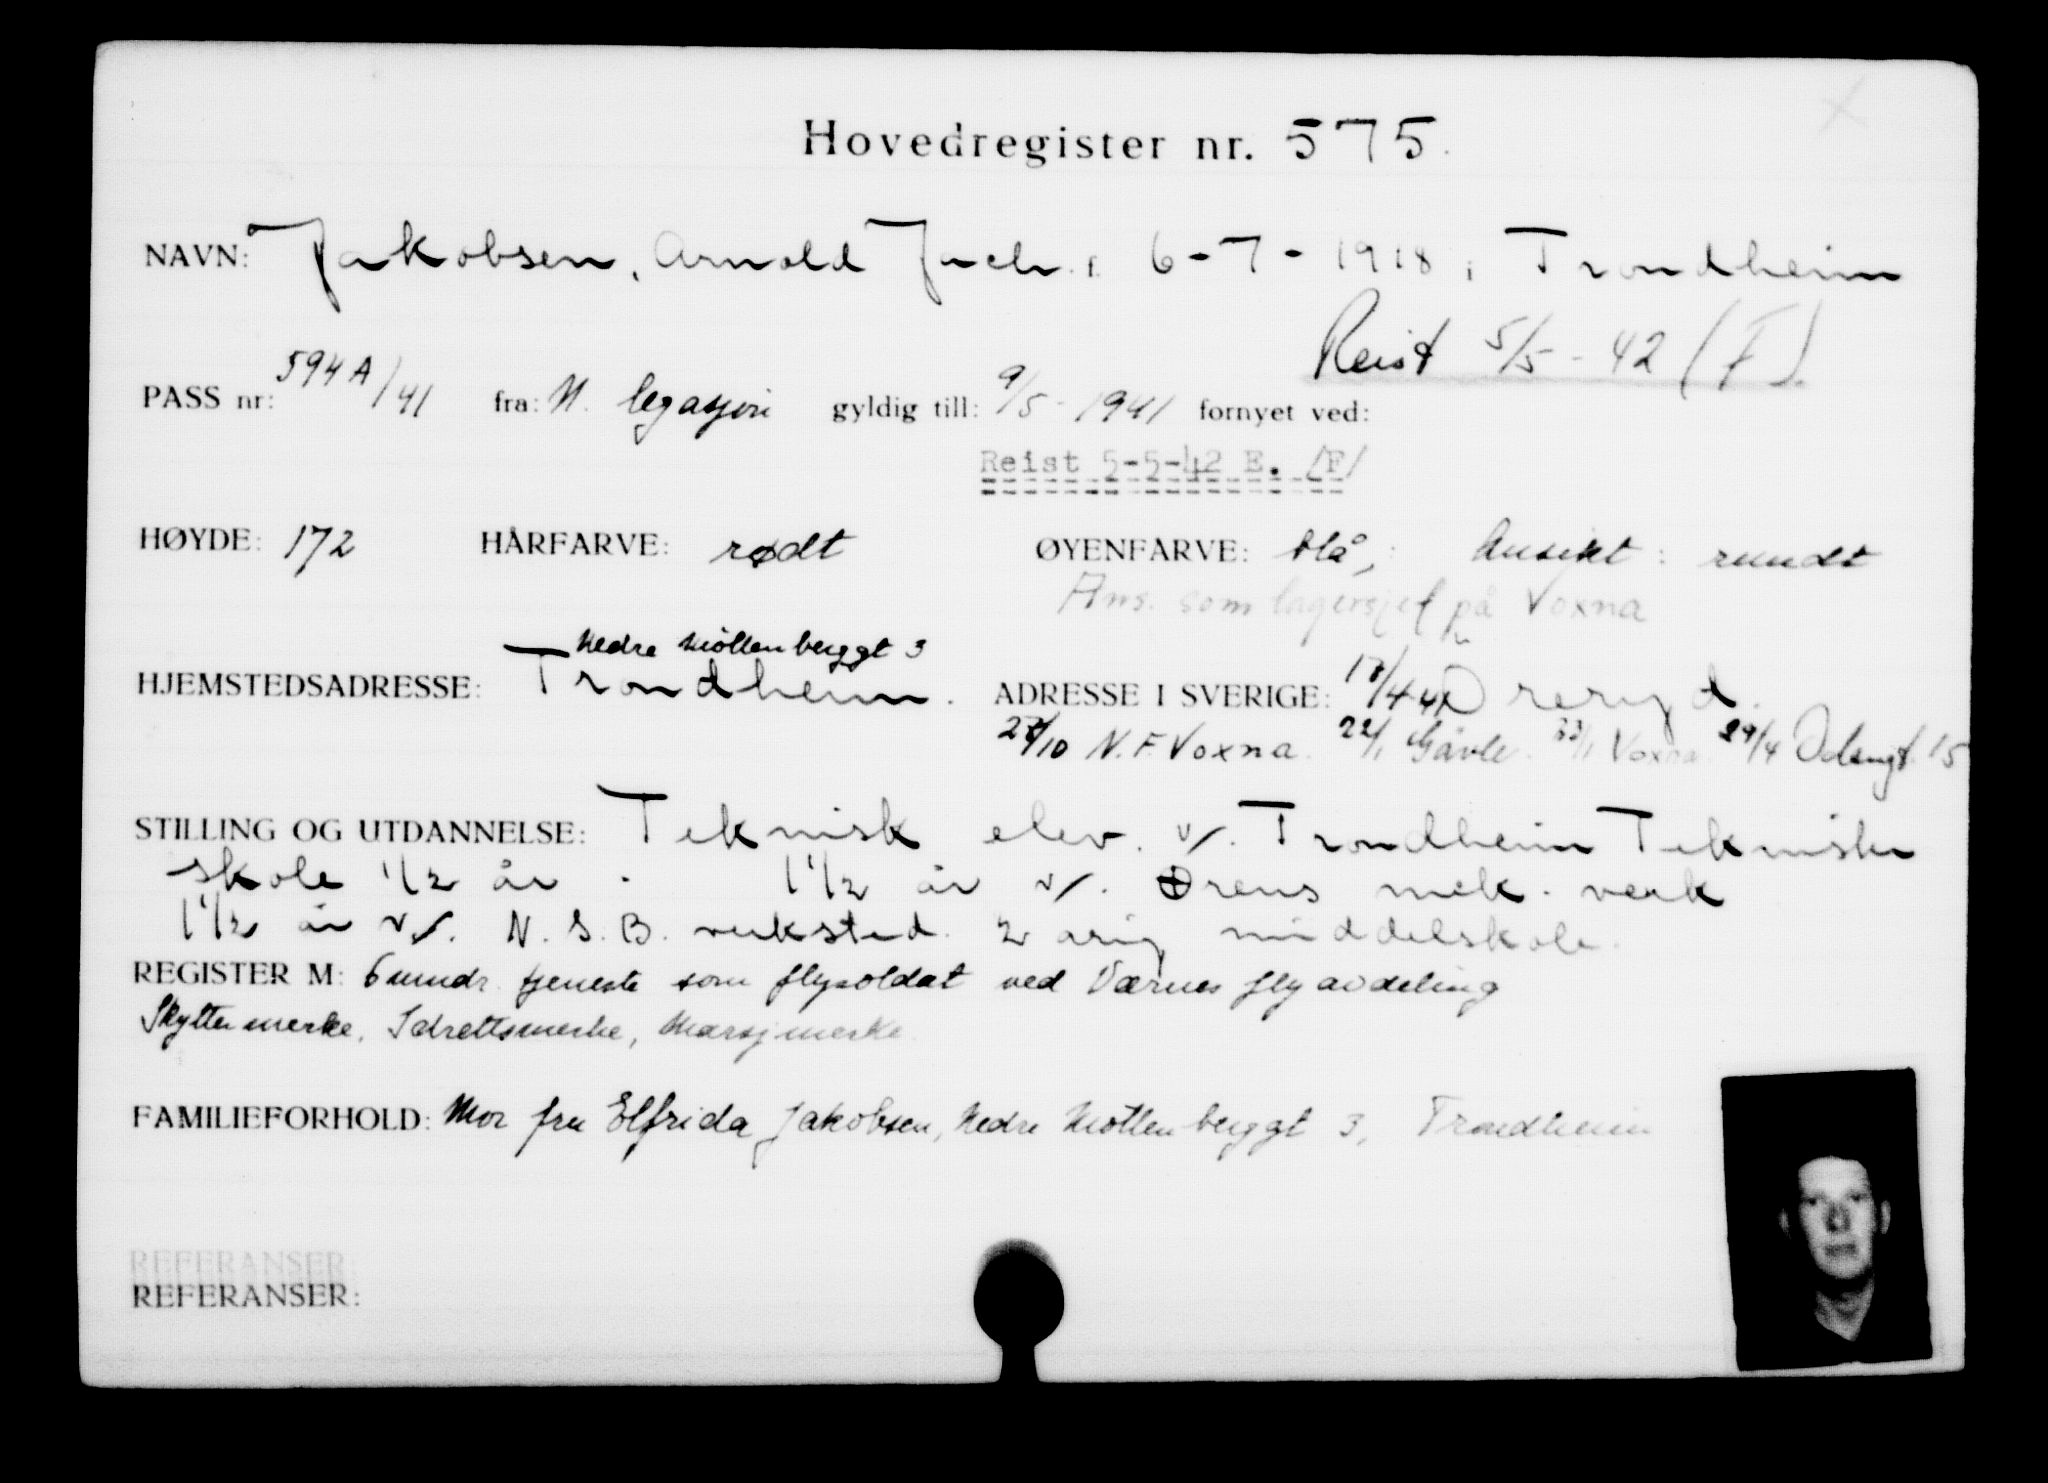 Hovedregister nr. 575.
NAVN: Jakobsen, Arnold 6-7-1918 i Trondheim
Reist 5/5-42 (F).
PASS nr: 594A/41 fra: N. legasjon gyldig till: 9/5-1941 fornyet ved:
Reist 5-5-42 E. /F/
HØYDE: 172 HÅRFARVE: rødt ØYENFARVE: blå, Ansikt: rundt
Ans. som lagersjef på Voxna
Nedre Möllenberggt 3
HJEMSTEDSADRESSE: Trondheim. ADRESSE I SVERIGE: Öreryd.
N.F. Voxna. 22/1 Gävle. Voxna 29/4 15
STILLING OG UTDANNELSE: Teknisk elev. v/. Trondheim Tekniske
skole 1/2 år. 1 1/2 år v/. Ørens mek. verk
1 1/2 år v/. N.S.B. verksted. 2 årig middelskole.
REGISTER M: 6 mndr. tjeneste som flysoldat ved Værnes flyavdeling
Skyttermerke, Idrettsmerke, Marsjmerke.
FAMILIEFORHOLD: Mor fru Elfrida Jakobsen, Nedre Möllenberggt 3, Trondheim
REFERANSER:
REFERANSER: